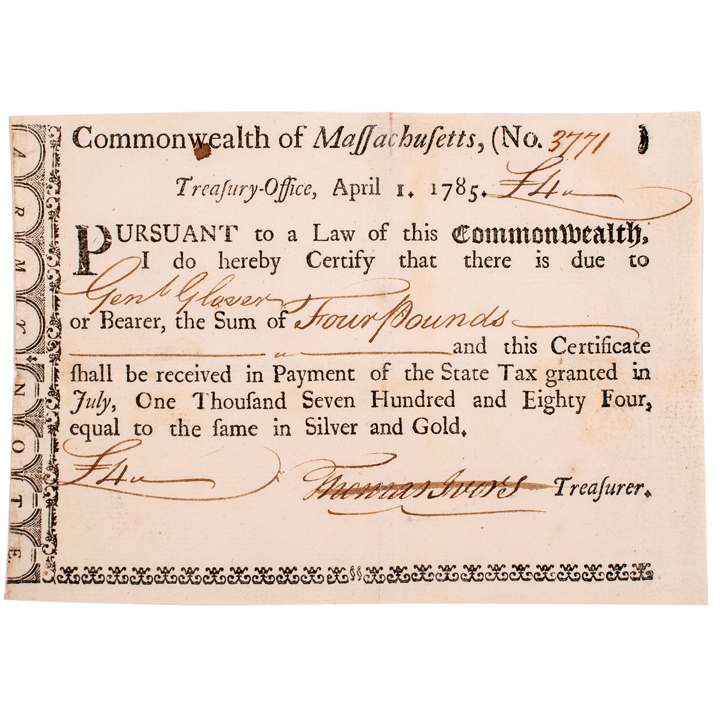 Commonwealth of Maſſachuſetts, (No. 3771 )
Treaſury-Office, April 1. 1785. £4
PURSUANT to a Law of this Commonwealth,
I do hereby Certify that there is due to
Genl Glover
or Bearer, the Sum of Four Pounds
and this Certificate
ſhall be received in Payment of the State Tax granted in
July, One Thouſand Seven Hundred and Eighty Four,
equal to the ſame in Silver and Gold.
£4
Thomas Ivers Treaſurer.
ARMY NOTE